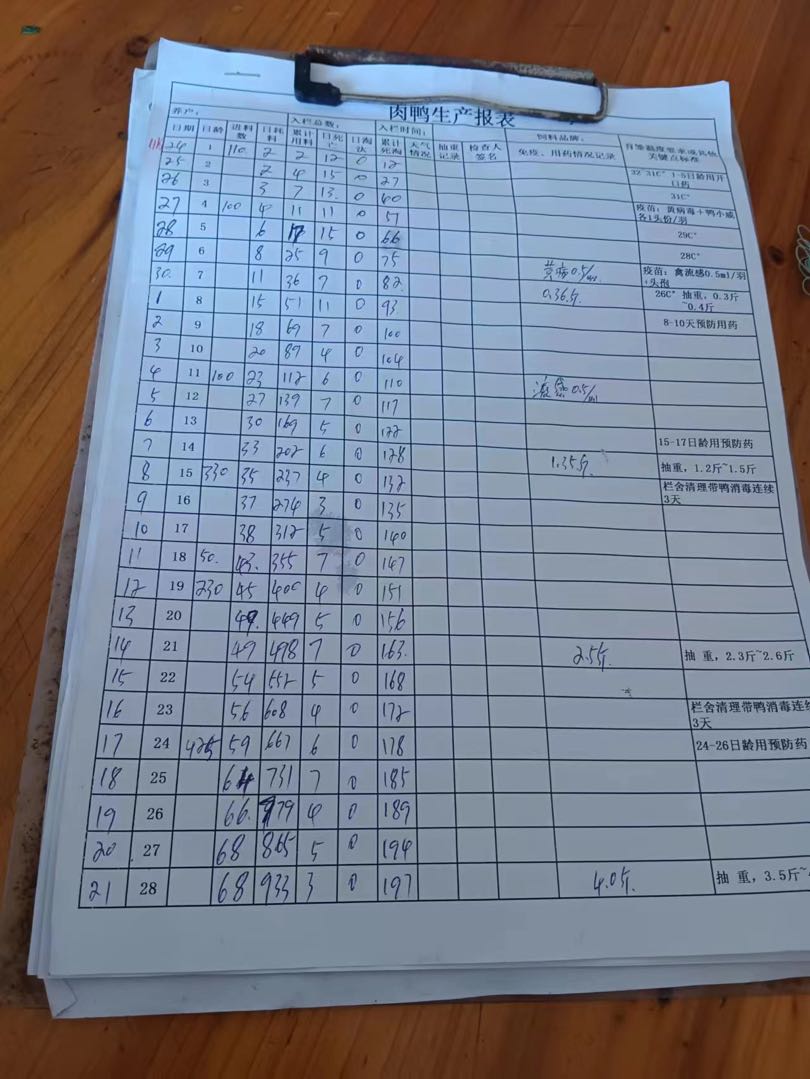 肉鸭生产报表
养户: 入栏总数: 入栏时间: 饲料品牌:
日期 日龄 进料数 日耗料 累计用料 日死亡 日淘汰 累计死淘 天气情况 抽重记录 检查人签名 免疫、用药情况记录 关键点标准
24 1 110 2 2 12 0 12 32-31C° 1-5日龄用开口药
25 2 2 4 15 0 27
26 3 3 7 13 0 40 31C°
27 4 100 4 11 11 0 51 疫苗:黄病毒+鸭小威各1头份/羽
28 5 6 17 15 0 66 29C°
29 6 8 25 9 0 75 28C°
30 7 11 36 7 0 82 0.5/ml 疫苗:禽流感0.5ml/羽+头孢
1 8 15 51 11 0 93 0.36斤 26C° 抽重,0.3斤~0.4斤
2 9 18 69 7 0 100 8-10天预防用药
3 10 20 89 4 0 104
4 11 100 23 112 6 0 110
5 12 27 139 7 0 117 流感0.5/ml
6 13 30 169 5 0 122
7 14 33 202 6 0 128 15-17日龄用预防药
8 15 330 35 237 4 0 132 1.35斤 抽重,1.2斤~1.5斤
9 16 37 274 3 0 135 栏舍清理带鸭消毒连续3天
10 17 38 312 5 0 140
11 18 50 43 355 7 0 147
12 19 230 45 400 4 0 151
13 20 49 449 5 0 156
14 21 49 498 7 0 163 2.5斤 抽 重,2.3斤~2.6斤
15 22 54 552 5 0 168
16 23 56 608 4 0 172 栏舍清理带鸭消毒连续3天
17 24 425 59 667 6 0 178 24-26日龄用预防药
18 25 64 731 7 0 185
19 26 66 4 0 189
20 27 68 865 5 0 194
21 28 68 933 3 0 197 4.0斤 抽 重,3.5斤~